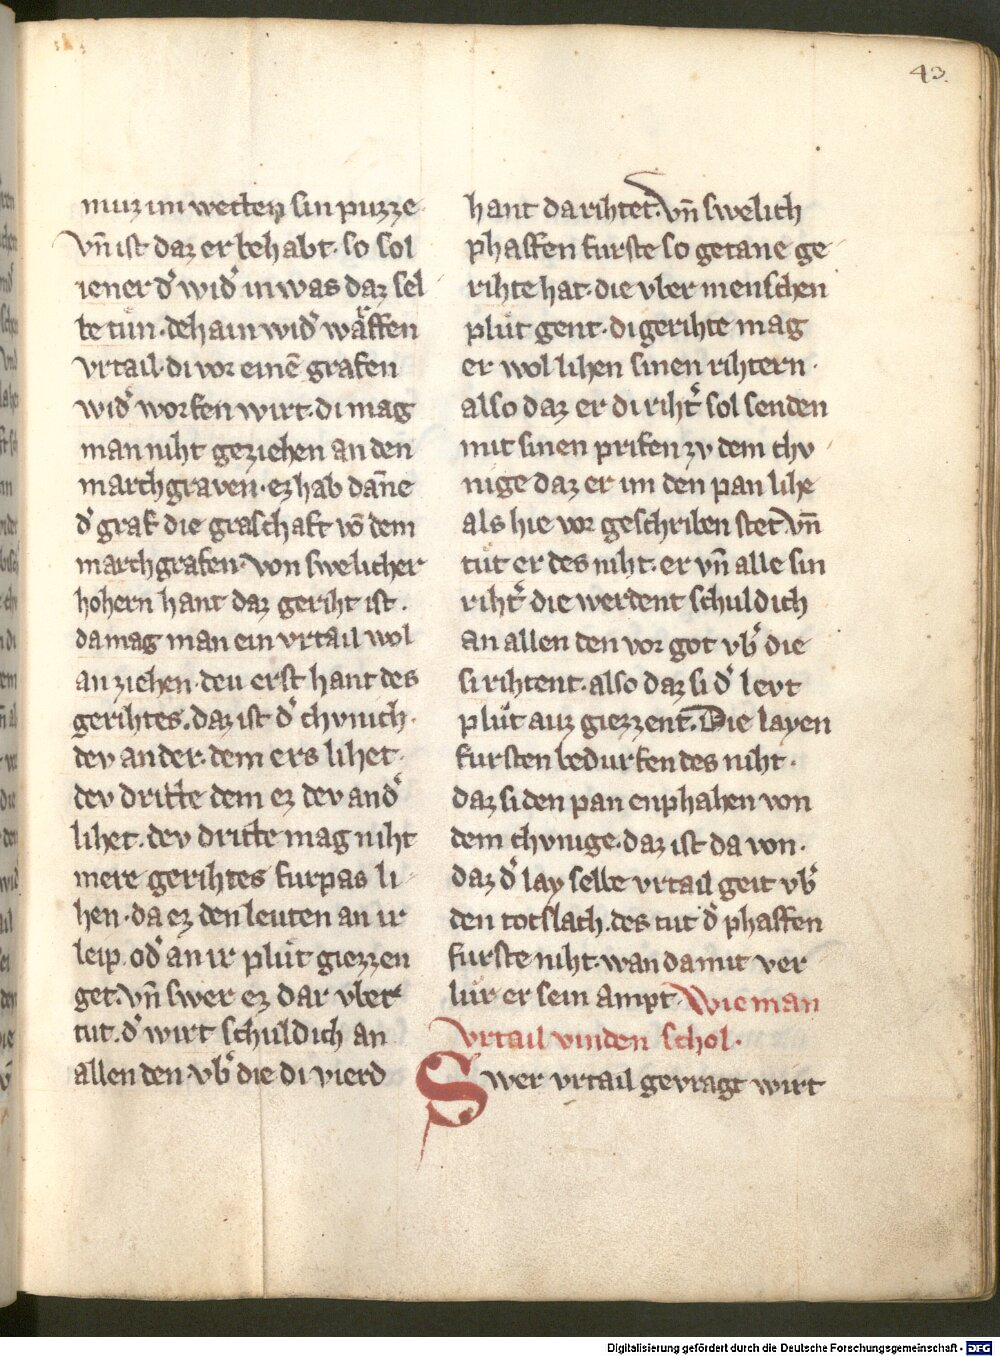 43.
muz im wetten sin puzze
vn̄ ist daz er behabt· so sol
iener dˀ widˀ in was daz sel
be tuͤn· dehain widˀ waͤffen
vrtail· di vor einē grafen
widˀ worfen wirt· di mag
man niht geziehen an den
marchgraven· ez hab dan̄e
dˀ graf die grafschaft vō dem
marchgrafen· von swelicher
hohern hant daz geriht ist·
da mag man ein vrtail wol
an ziehen· deu erst hant des
gerihtes· daz ist dˀ chvnich·
dev ander· dem ers lihet·
dev dritte dem ez dev andˀ
lihet· dev dritte mag niht
mere gerihtes furpas li
hen· da ez den leuten an ir
leip· odˀ an ir pluͤt giezzen
get· vn̄ swer ez dar vber
tut· dˀ wirt schuldich an
allen den· vbˀ die di vierd
hant da rihtet· vn̄ swelich
phaffen furste so getane ge
rihte hat· die vber menschen
pluͤt gent· di gerihte mag
er wol lihen sinen rihtern·
also daz er di rihtˀ sol senden
mit sinen prifen zv dem chv
nige daz er im den pan lihe
als hie vor geschriben stet vn̄
tuͤt er des niht· er vn̄ alle sin
rihtˀ die werdent schuldich
an allen den vor got vbˀ die
si rihtent· also daz si dˀ levt
pluͤt auz giezzent· Die layen
fursten bedurfen des niht·
daz si den pan enphahen von
dem chvnige· daz ist da von·
daz dˀ lay selbe vrtail geit vbˀ
den totslach· des tut dˀ phaffen
furste niht· wan da mit ver
lur er sein ampt· Wie man
vrtail vinden schol·
Swer vrtail gevragt wirt
Digitalisierung gefördert durch die Deutsche Forschungsgemeinschaft - DFG